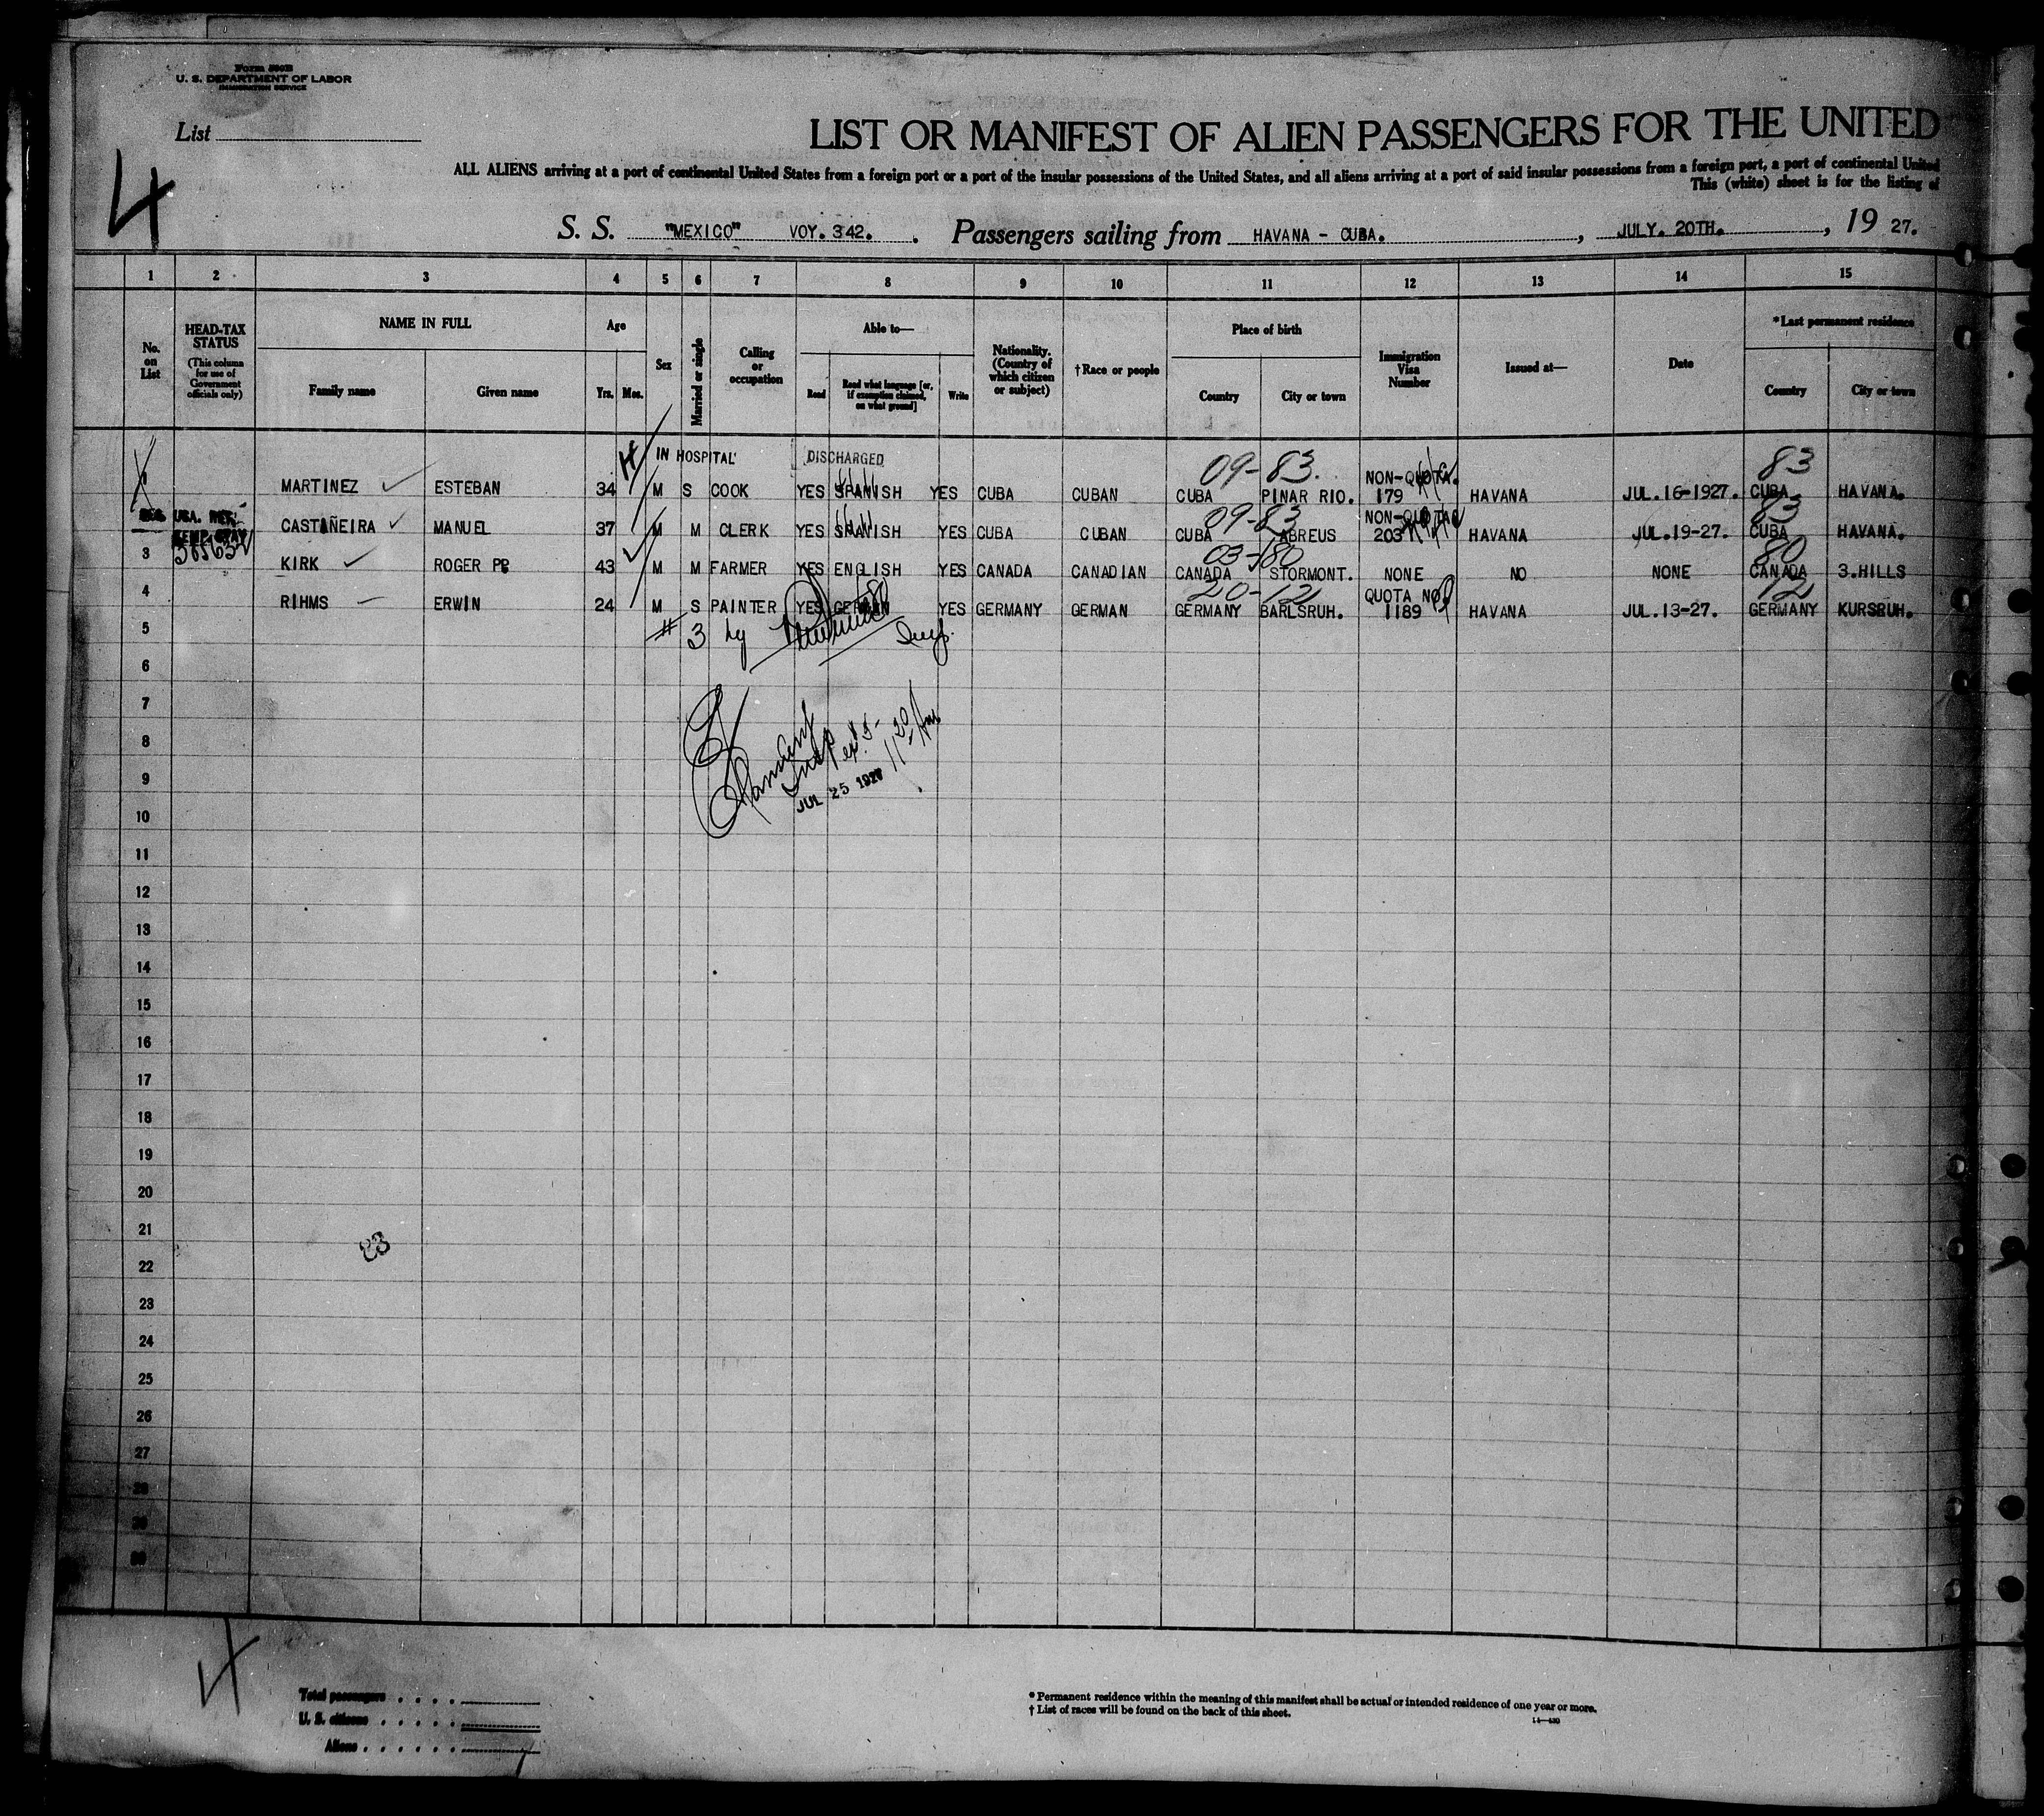 Form 500B
U. S. DEPARTMENT OF LABOR
IMMIGRATION SERVICE
List
4
LIST OR MANIFEST OF ALIEN PASSENGERS FOR THE UNITED
ALL ALIENS arriving at a port of continental United States from a foreign port or a port of the insular possessions of the United States, and all aliens arriving at a port of said insular possessions from a foreign port, a port of continental United
This (white) sheet is for the listing of
S. S. "MEXICO" VOY. 342. Passengers sailing from HAVANA - CUBA. , JULY. 20TH. , 19 27.
1 2 3 4 5 6 7 8 9 10 11 12 13 14 15
No. on List
HEAD-TAX STATUS
(This column for use of Government officials only)
NAME IN FULL
Family name Given name
Age
Yrs. Mos.
Sex
Married or single
Calling or occupation
Able to—
Read Read what language [or, if exemption claimed, on what ground] Write
Nationality. (Country of which citizen or subject)
†Race or people
Place of birth
Country City or town
Immigration Visa Number
Issued at—
Date
*Last permanent residence
Country City or town
IN HOSPITAL DISCHARGED 09-83. NON-QUOTA. 83
1 MARTINEZ ESTEBAN 34 M S COOK YES SPANISH YES CUBA CUBAN CUBA PINAR RIO. 179 HAVANA JUL.16-1927. CUBA HAVANA.
09-83 83
CASTAÑEIRA MANUEL 37 M M CLERK YES SPANISH YES CUBA CUBAN CUBA ABREUS 203 HAVANA JUL.19-27. CUBA HAVANA.
03-80 80
3 KIRK ROGER 43 M M FARMER YES ENGLISH YES CANADA CANADIAN CANADA STORMONT. NONE NO NONE CANADA 3.HILLS
20-12 QUOTA NO 12
4 RIHMS ERWIN 24 M S PAINTER YES GERMAN YES GERMANY GERMAN GERMANY BARLSRUH. 1189 HAVANA JUL.13-27. GERMANY KURSRUH.
5
# 3 by
6
7
8
9
JUL 25 1927
10
11
12
13
14
15
16
17
18
19
20
21
83
22
23
24
25
26
27
28
29
30
4
Total passengers
U. S. citizens
Aliens
* Permanent residence within the meaning of this manifest shall be actual or intended residence of one year or more.
† List of races will be found on the back of this sheet.
14—430